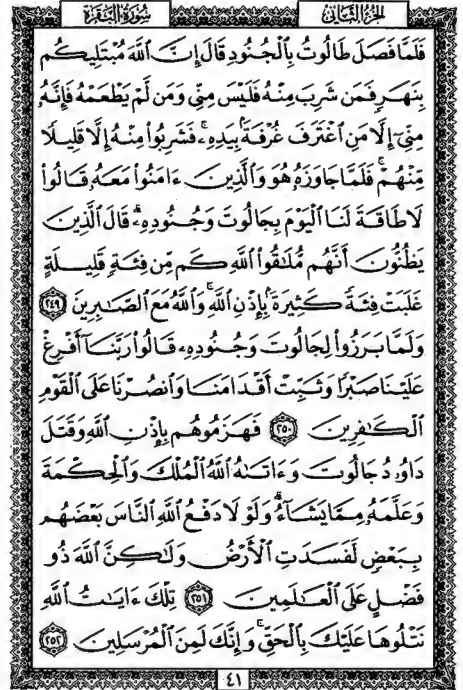 سُورَةُ البَقَرَةِ
الجُزءُ الثَّانِي
فَلَمَّا فَصَلَ طَالُوتُ بِٱلْجُنُودِ قَالَ إِنَّ ٱللَّهَ مُبْتَلِيكُم
بِنَهَرٍ فَمَن شَرِبَ مِنْهُ فَلَيْسَ مِنِّي وَمَن لَّمْ يَطْعَمْهُ فَإِنَّهُۥ
مِنِّيٓ إِلَّا مَنِ ٱغْتَرَفَ غُرْفَةَۢ بِيَدِهِۦۚ فَشَرِبُوا۟ مِنْهُ إِلَّا قَلِيلًا
مِّنْهُمْۚ فَلَمَّا جَاوَزَهُۥ هُوَ وَٱلَّذِينَ ءَامَنُوا۟ مَعَهُۥ قَالُوا۟
لَا طَاقَةَ لَنَا ٱلْيَوْمَ بِجَالُوتَ وَجُنُودِهِۦۚ قَالَ ٱلَّذِينَ
يَظُنُّونَ أَنَّهُم مُّلَٰقُوا۟ ٱللَّهِ كَم مِّن فِئَةٍ قَلِيلَةٍ
غَلَبَتْ فِئَةً كَثِيرَةَۢ بِإِذْنِ ٱللَّهِۗ وَٱللَّهُ مَعَ ٱلصَّٰبِرِينَ ٢٤٩
وَلَمَّا بَرَزُوا۟ لِجَالُوتَ وَجُنُودِهِۦ قَالُوا۟ رَبَّنَآ أَفْرِغْ
عَلَيْنَا صَبْرًا وَثَبِّتْ أَقْدَامَنَا وَٱنصُرْنَا عَلَى ٱلْقَوْمِ
ٱلْكَٰفِرِينَ ٢٥٠ فَهَزَمُوهُم بِإِذْنِ ٱللَّهِ وَقَتَلَ
دَاوُۥدُ جَالُوتَ وَءَاتَىٰهُ ٱللَّهُ ٱلْمُلْكَ وَٱلْحِكْمَةَ
وَعَلَّمَهُۥ مِمَّا يَشَآءُۗ وَلَوْلَا دَفْعُ ٱللَّهِ ٱلنَّاسَ بَعْضَهُم
بِبَعْضٍ لَّفَسَدَتِ ٱلْأَرْضُ وَلَٰكِنَّ ٱللَّهَ ذُو
فَضْلٍ عَلَى ٱلْعَٰلَمِينَ ٢٥١ تِلْكَ ءَايَٰتُ ٱللَّهِ
نَتْلُوهَا عَلَيْكَ بِٱلْحَقِّۚ وَإِنَّكَ لَمِنَ ٱلْمُرْسَلِينَ ٢٥٢
٤١